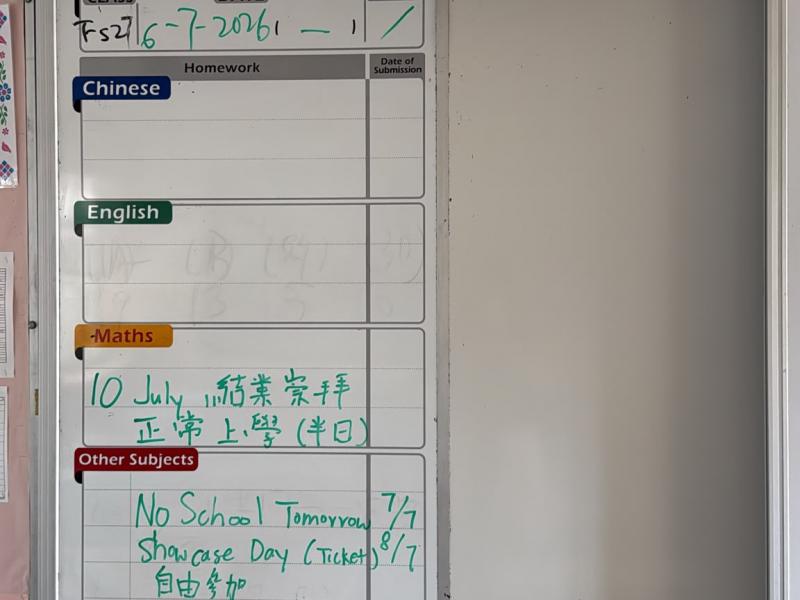 6-7-2026
Homework Date of Submission
Chinese
English
Maths
10 July 結業崇拜
正常上學 (半日)
Other Subjects
No School Tomorrow 7/7
Showcase Day (Ticket) 8/7
自由參加